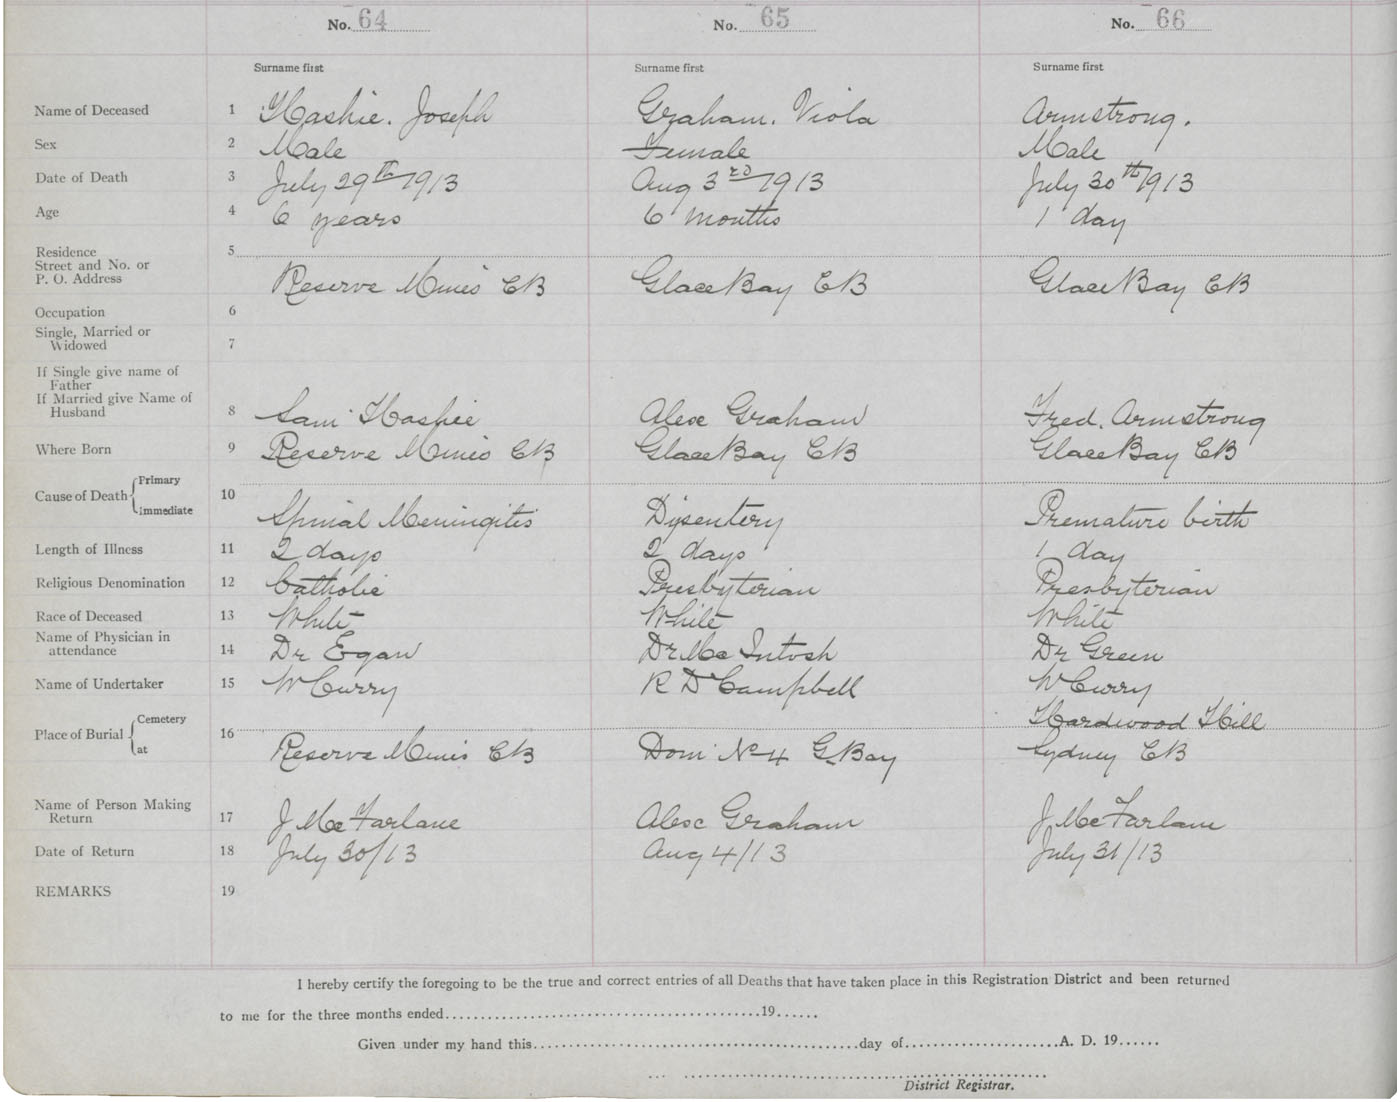 No. 64 No. 65 No. 66
Surname first Surname first Surname first
Name of Deceased 1 Hashie. Joseph Graham. Viola Armstrong.
Sex 2 Male Female Male
Date of Death 3 July 29th 1913 Aug 3rd 1913 July 30th 1913
Age 4 6 years 6 months 1 day
Residence 5
Street and No. or
P. O. Address Reserve Mines CB Glace Bay CB Glace Bay CB
Occupation 6
Single, Married or
Widowed 7
If Single give name of
Father
If Married give Name of
Husband 8 Sam Hashie Alex Graham Fred. Armstrong
Where Born 9 Reserve Mines CB Glace Bay CB Glace Bay CB
Cause of Death Primary
Immediate 10 Spinal Meningitis Dysentery Premature birth
Length of Illness 11 2 days 2 days 1 day
Religious Denomination 12 Catholic Presbyterian Presbyterian
Race of Deceased 13 White White White
Name of Physician in
attendance 14 Dr Egan Dr McIntosh Dr Green
Name of Undertaker 15 W Curry R D Campbell W Curry
Place of Burial Cemetery 16 Hardwood Hill
at Reserve Mines CB Dom No 4 G. Bay Sydney CB
Name of Person Making
Return 17 J McFarlane Alex Graham J McFarlane
Date of Return 18 July 30/13 Aug 4/13 July 31/13
REMARKS 19
I hereby certify the foregoing to be the true and correct entries of all Deaths that have taken place in this Registration District and been returned
to me for the three months ended..........19......
Given under my hand this..........day of..........A. D. 19......
District Registrar.